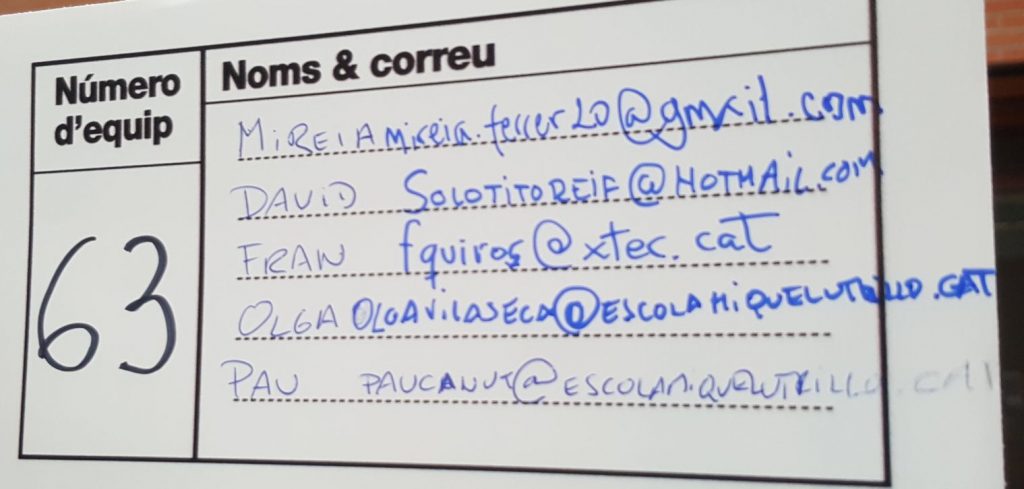 Número d'equip
Noms & correu
63
MIREIA mireia.ferrer20@gmail.com
DAVID SOLOTITOREIF@HOTMAIL.COM
FRAN fquiros@xtec.cat
OLGA OLGAVILASECA@ESCOLAMIQUELUTRILLO.CAT
PAU PAUCANUT@ESCOLAMIQUELUTRILLO.CAT